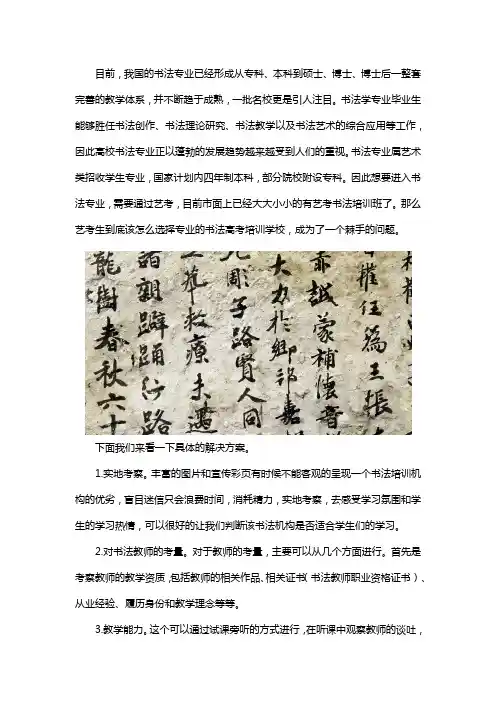 目前，我国的书法专业已经形成从专科、本科到硕士、博士、博士后一整套
完善的教学体系，并不断趋于成熟，一批名校更是引人注目。书法学专业毕业生
能够胜任书法创作、书法理论研究、书法教学以及书法艺术的综合应用等工作，
因此高校书法专业正以蓬勃的发展趋势越来越受到人们的重视。书法专业属艺术
类招收学生专业，国家计划内四年制本科，部分院校附设专科。因此想要进入书
法专业，需要通过艺考，目前市面上已经大大小小的有艺考书法培训班了。那么
艺考生到底该怎么选择专业的书法高考培训学校，成为了一个棘手的问题。
權任為王張
誠蒙補懷音
大力於鄉祁嘉
彫子路賢人同
救療未遇
諸親躃踊泣路
龍樹春秋六十
下面我们来看一下具体的解决方案。
1.实地考察。丰富的图片和宣传彩页有时候不能客观的呈现一个书法培训机
构的优劣，盲目迷信只会浪费时间，消耗精力，实地考察，去感受学习氛围和学
生的学习热情，可以很好的让我们判断该书法机构是否适合学生们的学习。
2.对书法教师的考量。对于教师的考量，主要可以从几个方面进行。首先是
考察教师的教学资质，包括教师的相关作品、相关证书（书法教师职业资格证书）、
从业经验、履历身份和教学理念等等。
3.教学能力。这个可以通过试课旁听的方式进行，在听课中观察教师的谈吐，